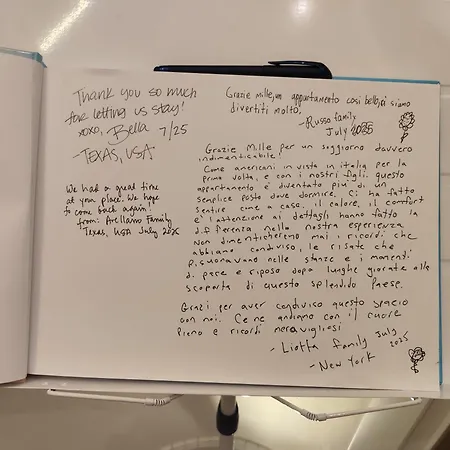 Thank you so much
for letting us stay!
xoxo, Bella 7/25
-TEXAS, USA
We had a great time
at your place. We hope
to come back again!
from: Arellano Family
Texas, USA July 202
Grazie mille, un appartamento così bello, ci siamo
divertiti molto,
-Russo family
July 2025
Grazie Mille per un soggiorno davvero
indimenticabile!
Come americani in vista in italia per la
prima volta, e con i nostri figli, questo
appartamento è diventato piu' di un
semplice posto dove dormire. Ci ha fatto
sentire come a casa, il calore, il comfort
e l'attenzione ai dettagli hanno fatto la
differenza nella nostra esperienza
Non dimenticheremo mai i ricordi che
abbiamo condiviso, le risate che
risuonavano nelle stanze e i momenti
di pace e riposo dopo lunghe giornate alla
scoperta di questo splendido Paese.
Grazi per aver condivico questo spacio
con noi. Ce ne andiamo con il cuore
Pieno e ricordi meravigliosi
- Liotta family July
2025
- New York